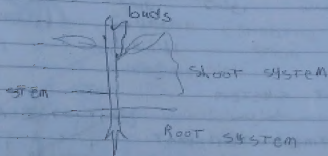 buds
Shoot system
stem
Root system